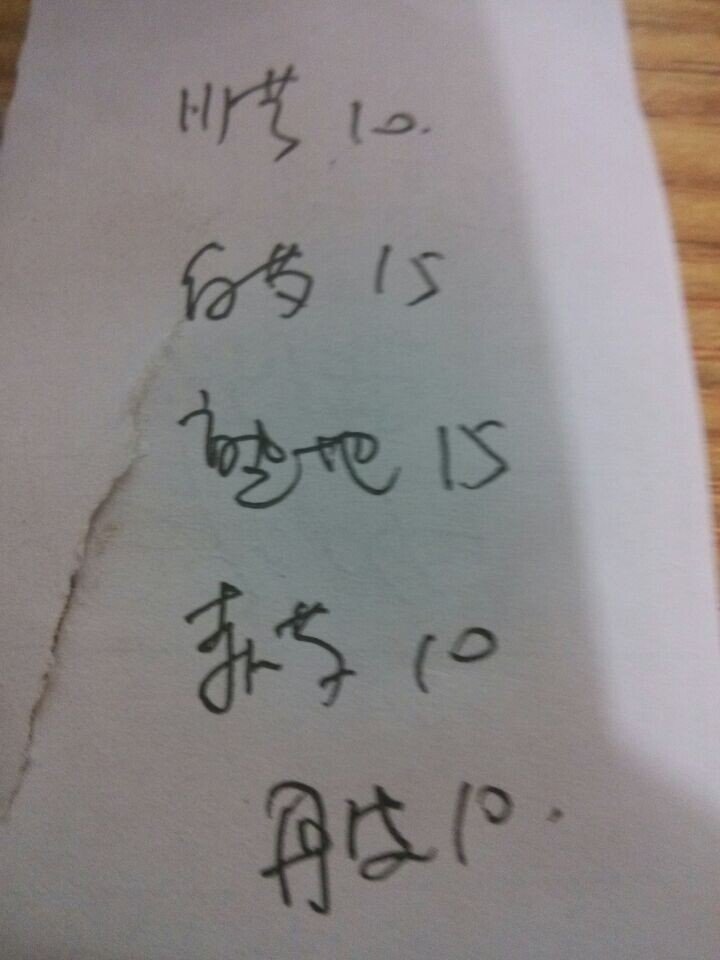 川芎 10.
白芍 15
熟地 15
赤芍 10
丹皮 10.